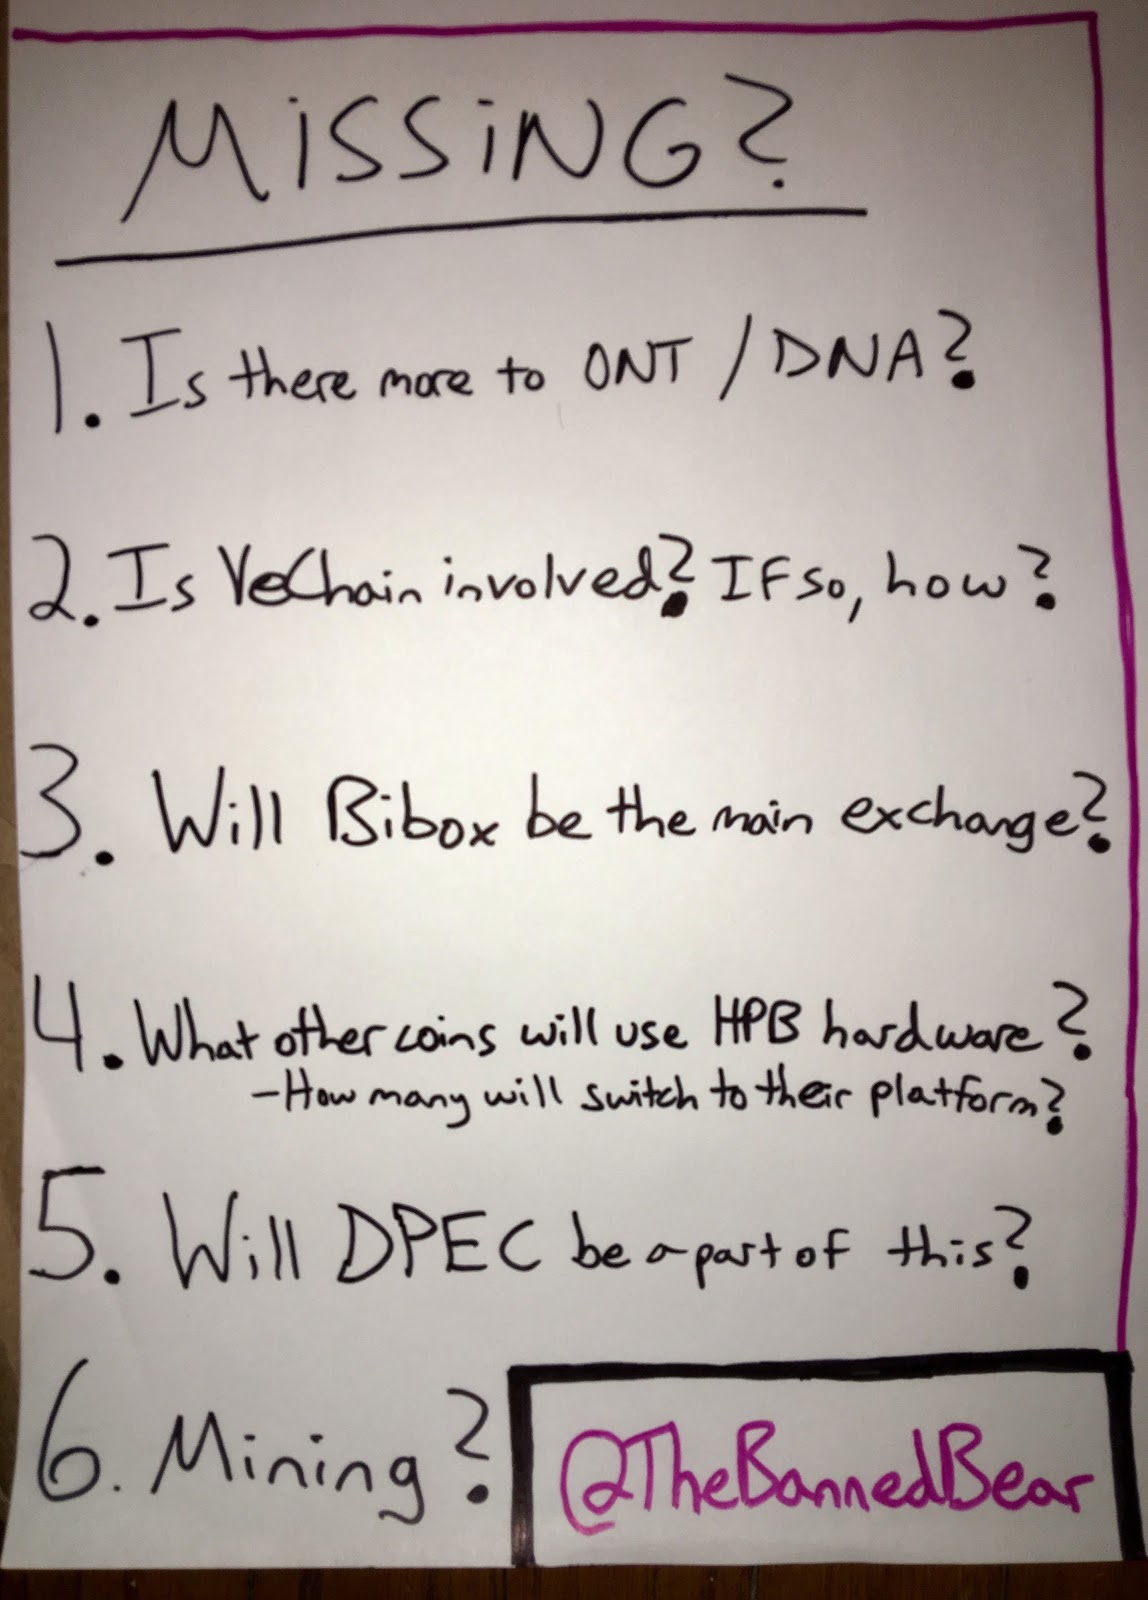 MiSSiNG?
1. Is there more to ONT / DNA?
2. Is VeChain involved? IF so, how?
3. Will Bibox be the main exchange?
4. What other coins will use HPB hardware?
-How many will switch to their platform?
5. Will DPEC be a part of this?
6. Mining?
@TheBannedBear